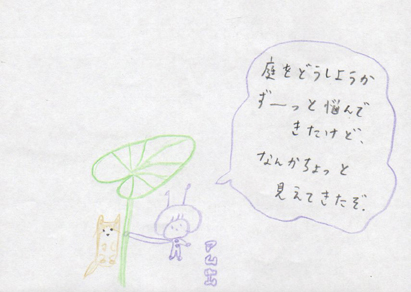 庭をどうしようか
ずーっと悩んで
きたけど、
なんかちょっと
見えてきたぞ。